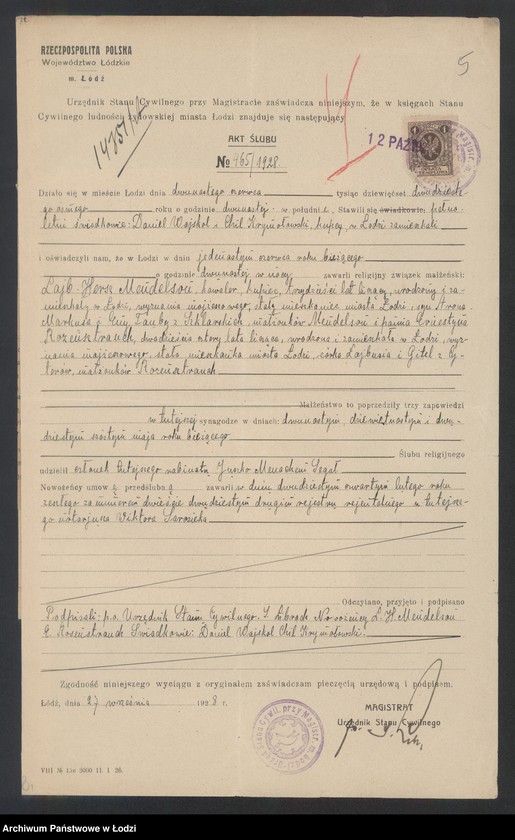 RZECZPOSPOLITA POLSKA
Województwo Łódzkie
m. Łódź
5
Urzędnik Stanu Cywilnego przy Magistracie zaświadcza niniejszym, że w księgach Stanu
Cywilnego ludności żydowskiej miasta Łodzi znajduje się następujący
12 PAŹ
AKT ŚLUBU
№ 465/1928.
Działo się w mieście Łodzi dnia dwunastego czerwca tysiąc dziewięćset dwudzieste-
go ósmego roku o godzinie dwunastej w południe. Stawili się świadkowie: pełno-
letni świadkowie: Daniel Wajskol i Chil Krymołowski, kupcy, w Łodzi zamieszkali
i oświadczyli nam, że w Łodzi w jedenastym czerwca roku bieżącego
o godzinie dwunastej w nocy zawarli religijny związek małżeński:
Lajb-Hersz Mendelson, kawaler, kupiec, trzydzieści lat liczący, urodzony i za-
mieszkały w Łodzi, wyznania mojżeszowego, stały mieszkaniec miasta Łodzi, syn Arona
Markusa i Tauby z Szklarskich, małżonków Mendelson i panna Estera
Rozensztrauch, dwadzieścia cztery lata licząca, urodzona i zamieszkała w Łodzi, wyz-
nania mojżeszowego, stała mieszkanka miasta Łodzi, córka Lajbusia i Gitel z Cy-
torów, małżonków Rozensztrauch
Małżeństwo to poprzedziły trzy zapowiedzi
w tutejszej synagodze w dniach: dwunastym, dziewiętnastym i dwu-
dziestym szóstym maja roku bieżącego
Ślubu religijnego
udzielił członek tutejszego rabinatu Menachem Segał
Nowożeńcy umowę przedślubną zawarli w dniu dwudziestym czwartym lutego roku
zeszłego za numerem dwieście dwudziestym drugim rejestru rejentalnego u tutejsze-
go notarjusza Wiktora Sarosieka
Odczytano, przyjęto i podpisano
Podpisali: p.o. Urzędnik Stanu Cywilnego: Nowożeńcy L. H. Mendelson
E. Rozensztrauch Świadkowie: Daniel Wajskol Chil Krymołowski.
Zgodność niniejszego wyciągu z oryginałem zaświadczam pieczęcią urzędową i podpisem.
Łódź, dnia 27 września 1928 r.
MAGISTRAT
Urzędnik Stanu Cywilnego
VIII № 15a 5000 11. I. 28.
Archiwum Państwowe w Łodzi